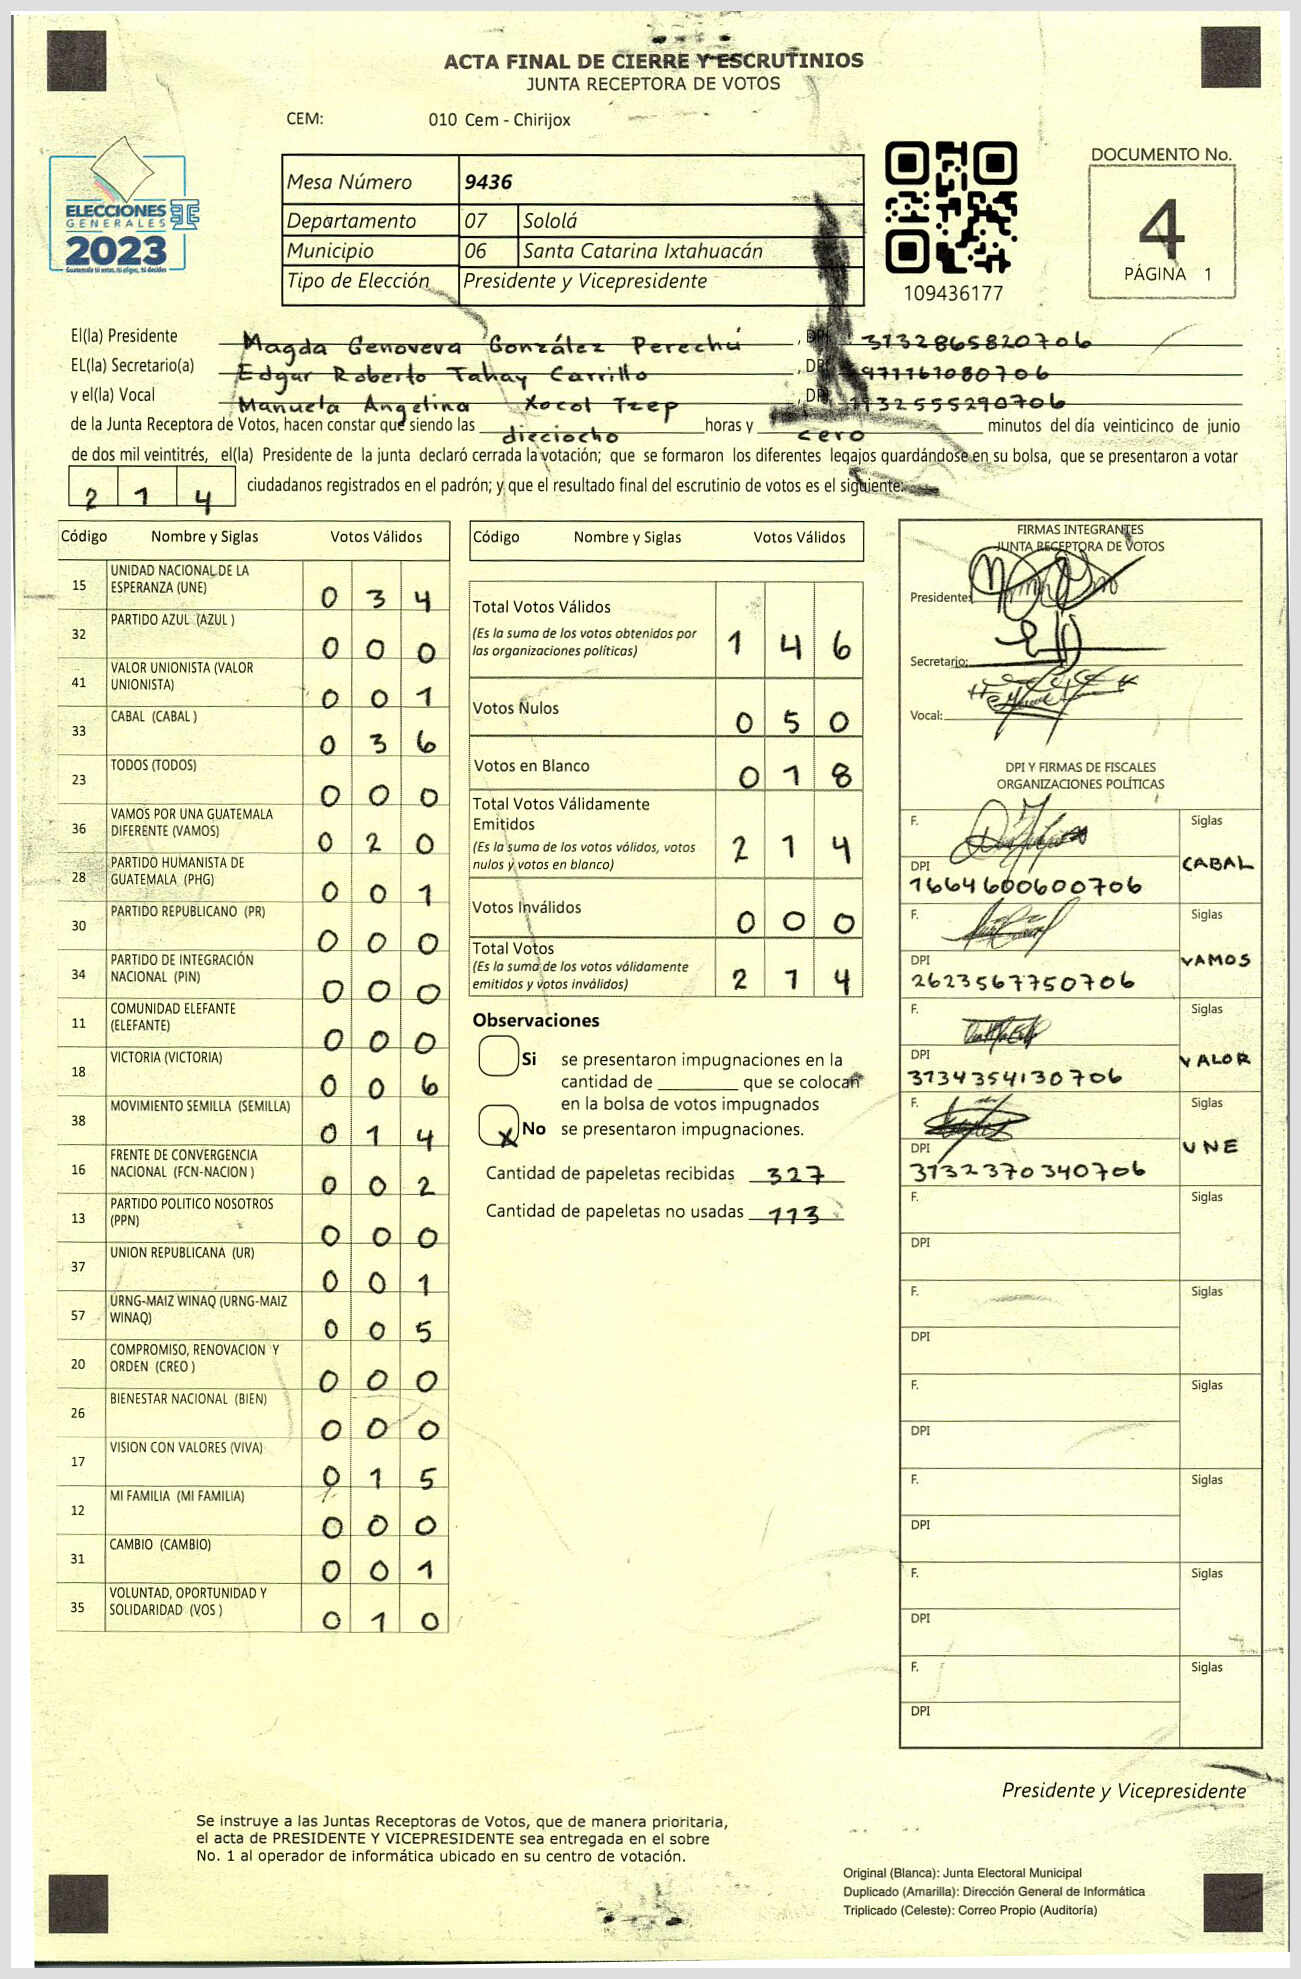 ACTA FINAL DE CIERRE Y ESCRUTINIOS
JUNTA RECEPTORA DE VOTOS
CEM: 010 Cem - Chirijox
ELECCIONES
GENERALES
2023
Mesa Número 9436
Departamento 07 Sololá
Municipio 06 Santa Catarina Ixtahuacán
Tipo de Elección Presidente y Vicepresidente
109436177
DOCUMENTO No.
4
PÁGINA 1
El(la) Presidente Magda Genoveva González Perechú, DPI 3132865820706
EL(la) Secretario(a) Edgar Roberto Tahay Carrillo, DPI 1971161080706
y el(la) Vocal Manuela Angelina Xocol Tzep, DPI 1932555290706
de la Junta Receptora de Votos, hacen constar que siendo las dieciocho horas y cero minutos del día veinticinco de junio
de dos mil veintitrés, el(la) Presidente de la junta declaró cerrada la votación; que se formaron los diferentes legajos guardándose en su bolsa, que se presentaron a votar
214 ciudadanos registrados en el padrón; y que el resultado final del escrutinio de votos es el siguiente:
Código Nombre y Siglas Votos Válidos
15 UNIDAD NACIONAL DE LA ESPERANZA (UNE) 034
32 PARTIDO AZUL (AZUL ) 000
41 VALOR UNIONISTA (VALOR UNIONISTA) 001
33 CABAL (CABAL ) 036
23 TODOS (TODOS) 000
36 VAMOS POR UNA GUATEMALA DIFERENTE (VAMOS) 020
28 PARTIDO HUMANISTA DE GUATEMALA (PHG) 001
30 PARTIDO REPUBLICANO (PR) 000
34 PARTIDO DE INTEGRACIÓN NACIONAL (PIN) 000
11 COMUNIDAD ELEFANTE (ELEFANTE) 000
18 VICTORIA (VICTORIA) 006
38 MOVIMIENTO SEMILLA (SEMILLA) 014
16 FRENTE DE CONVERGENCIA NACIONAL (FCN-NACION ) 002
13 PARTIDO POLITICO NOSOTROS (PPN) 000
37 UNION REPUBLICANA (UR) 001
57 URNG-MAIZ WINAQ (URNG-MAIZ WINAQ) 005
20 COMPROMISO, RENOVACION Y ORDEN (CREO ) 000
26 BIENESTAR NACIONAL (BIEN) 000
17 VISION CON VALORES (VIVA) 015
12 MI FAMILIA (MI FAMILIA) 000
31 CAMBIO (CAMBIO) 001
35 VOLUNTAD, OPORTUNIDAD Y SOLIDARIDAD (VOS ) 010
Código Nombre y Siglas Votos Válidos
Total Votos Válidos
(Es la suma de los votos obtenidos por
las organizaciones políticas) 146
Votos Nulos 050
Votos en Blanco 018
Total Votos Válidamente
Emitidos
(Es la suma de los votos válidos, votos
nulos y votos en blanco) 214
Votos Inválidos 000
Total Votos
(Es la suma de los votos válidamente
emitidos y votos inválidos) 214
Observaciones
Si se presentaron impugnaciones en la
cantidad de ________ que se colocan
en la bolsa de votos impugnados
X No se presentaron impugnaciones.
Cantidad de papeletas recibidas 327
Cantidad de papeletas no usadas 113
FIRMAS INTEGRANTES
JUNTA RECEPTORA DE VOTOS
Presidente:
Secretario:
Vocal:
DPI Y FIRMAS DE FISCALES
ORGANIZACIONES POLÍTICAS
F. Siglas
CABAL
DPI
1664600600706
F. Siglas
VAMOS
DPI
2623567750706
F. Siglas
VALOR
DPI
3134354130706
F. Siglas
UNE
DPI
3132370340706
F. Siglas
DPI
F. Siglas
DPI
F. Siglas
DPI
F. Siglas
DPI
F. Siglas
DPI
F. Siglas
DPI
Presidente y Vicepresidente
Se instruye a las Juntas Receptoras de Votos, que de manera prioritaria,
el acta de PRESIDENTE Y VICEPRESIDENTE sea entregada en el sobre
No. 1 al operador de informática ubicado en su centro de votación.
Original (Blanca): Junta Electoral Municipal
Duplicado (Amarilla): Dirección General de Informática
Triplicado (Celeste): Correo Propio (Auditoría)